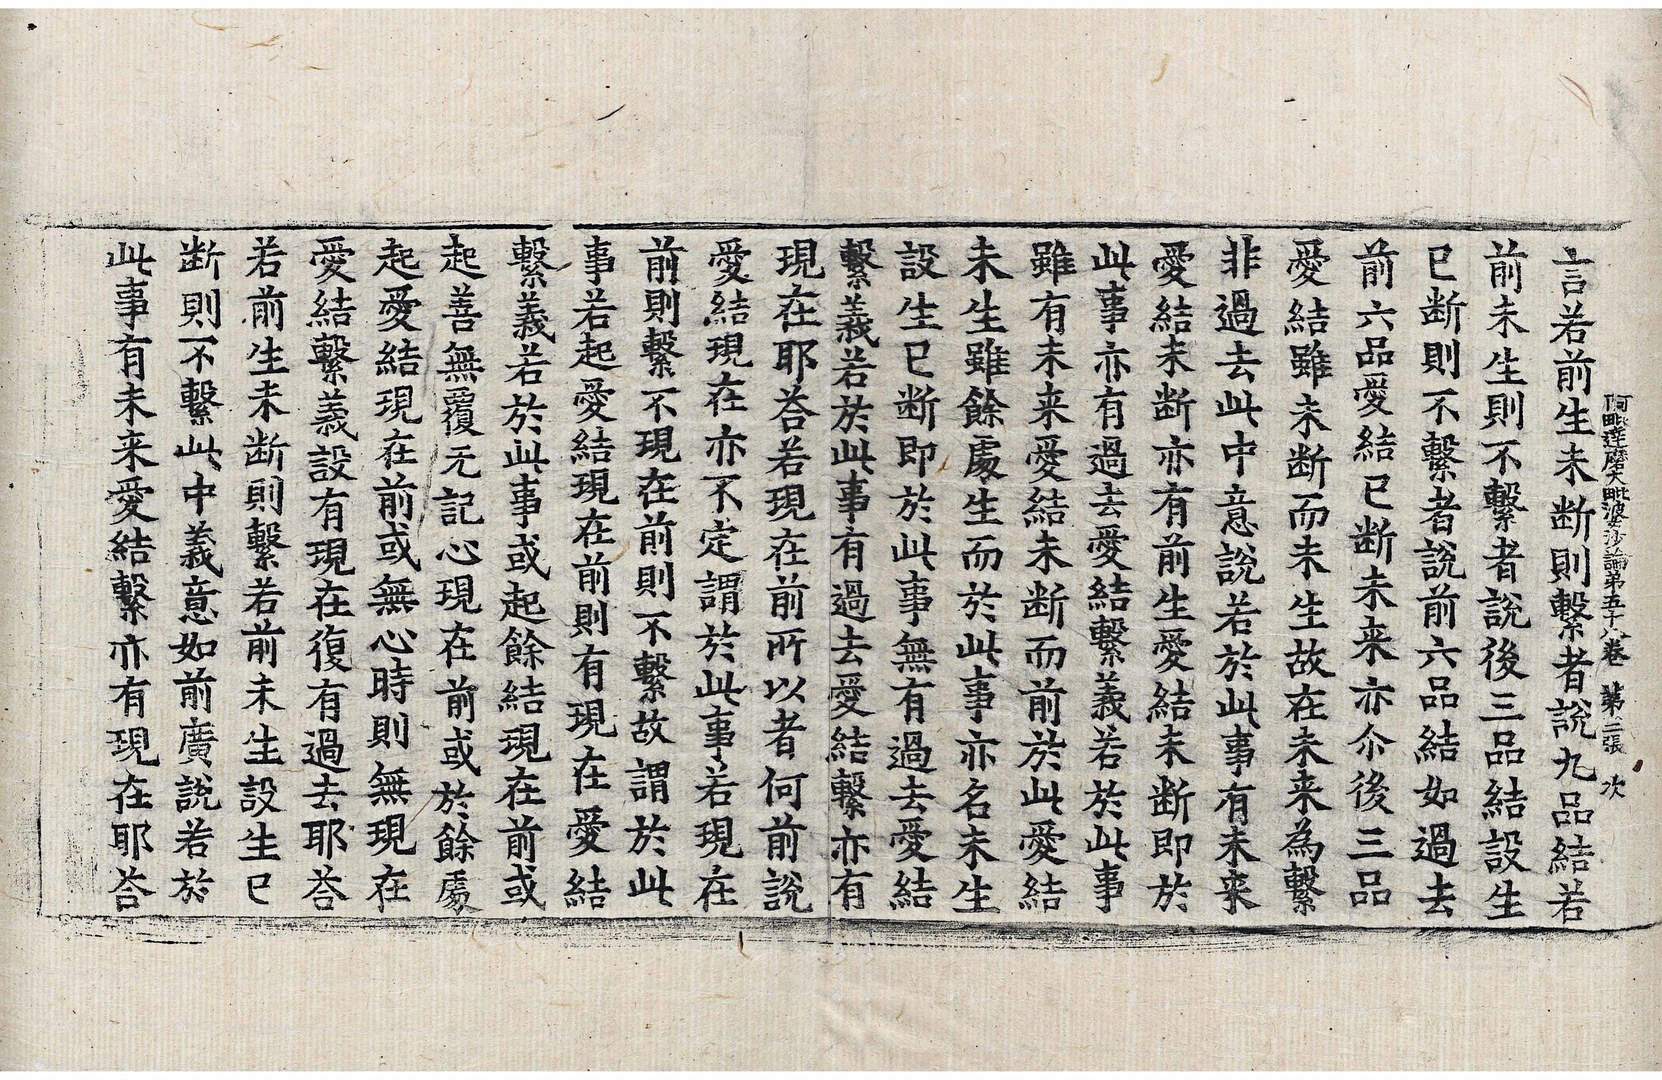 阿毗達磨大毗婆沙論第五十八卷 第二張 次
言若前生未断則繫者說九品結若
前未生則不繫者說後三品結設生
已断則不繫者說前六品結如過去
前六品愛結已断未来亦尒後三品
愛結雖未断而未生故在未来為繫
非過去此中意說若於此事有未来
愛結未断亦有前生愛結未断即於
此事亦有過去愛結繫義若於此事
雖有未来愛結未断而前於此愛結
未生雖餘處生而於此事亦名未生
設生已断即於此事無有過去愛結
繫義若於此事有過去愛結繫亦有
現在耶荅若現在前所以者何前說
愛結現在亦不定謂於此事若現在
前則繫不現在前則不繫故謂於此
事若起愛結現在前則有現在愛結
繫義若於此事或起餘結現在前或
起善無覆无記心現在前或於餘處
起愛結現在前或無心時則無現在
愛結繫義設有現在復有過去耶荅
若前生未断則繫若前未生設生已
断則不繫此中義意如前廣說若於
此事有未来愛結繫亦有現在耶荅